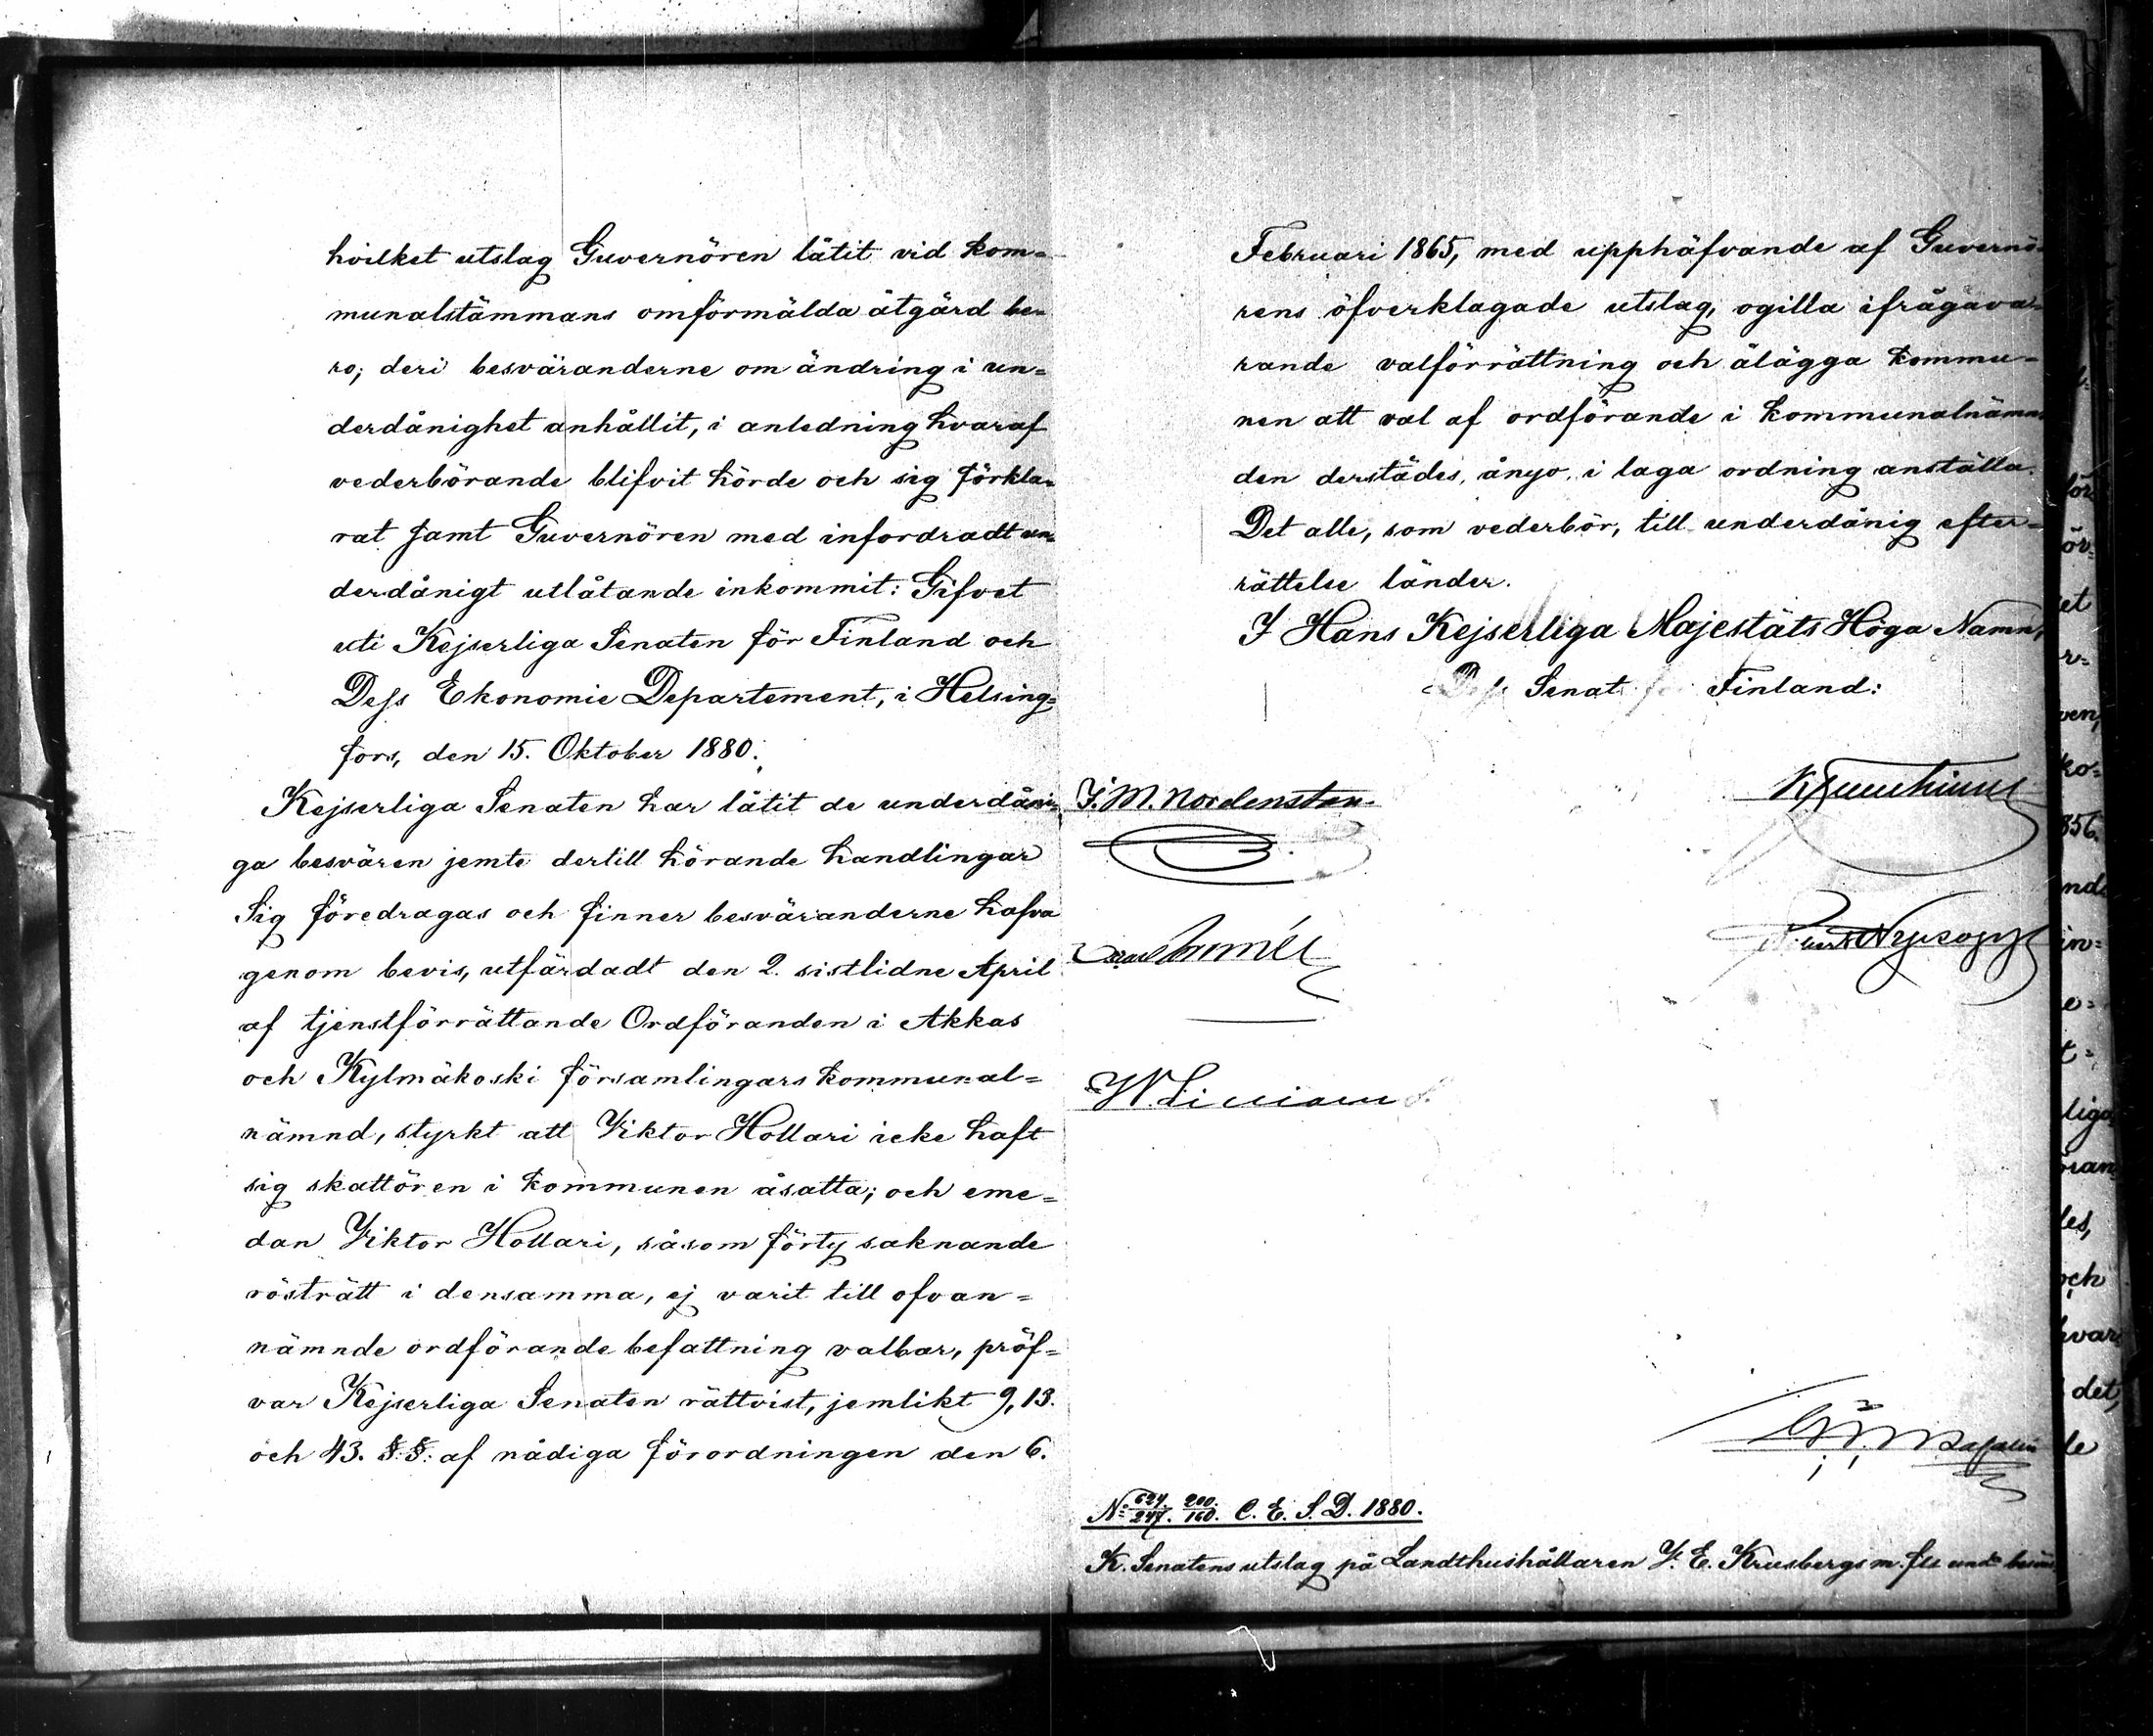 hvilket utslag Guvernören låtit vid kom=
munalstämmans omförmälda åtgärd be=
ro; deri besväranderne om ändring i un=
derdånighet anhållit, i anledning hvaraf
vederbörande blifvit hörde och sig förkla=
rat samt Guvernören med infordradt un=
derdånigt utlåtande inkommit: Gifvet
uti Kejserliga Senaten för Finland och
Dess Ekonomie Departement, i Helsing=
fors, den 15. Oktober 1880.
Kejserliga Senaten har låtit de underdåni=
ga besvären jemte dertill hörande handlingar
Sig föredragas och finner besväranderne hafva
genom bevis, utfärdadt den 2. sistlidne April
af tjenstförrättande Ordföranden i Akkas
och Kylmäkoski församlingars kommunal=
nämnd, styrkt att Viktor Hollari icke haft
sig skattören i kommunen åsatta; och eme=
dan Viktor Hollari, såsom förty saknande
rösträtt i densamma, ej varit till ofvan=
nämnde ordförande befattning valbar, pröf=
var Kejserliga Senaten rättvist, jemlikt 9, 13.
och 43. §.§: af nådiga förordningen den 6.
Februari 1865, med upphäfvande af Guvernö=
rens öfverklagade utslag, ogilla ifrågava=
rande valförrättning och ålägga kommu=
nen att val af ordförande i kommunalnämn
den derstädes, ånyo, i laga ordning anställa.
Det alle, som vederbör, till underdånig efter=
rättelse länder.
I Hans Kejserliga Majestäts Höga Namn,
Dess Senat för Finland:
J. M. Nordenstam.
Nº 624./247. 200./160. C. E. S. D. 1880.
K. Senatens utslag på Landthushållaren J. E. Krusbergs m. fl:s und: